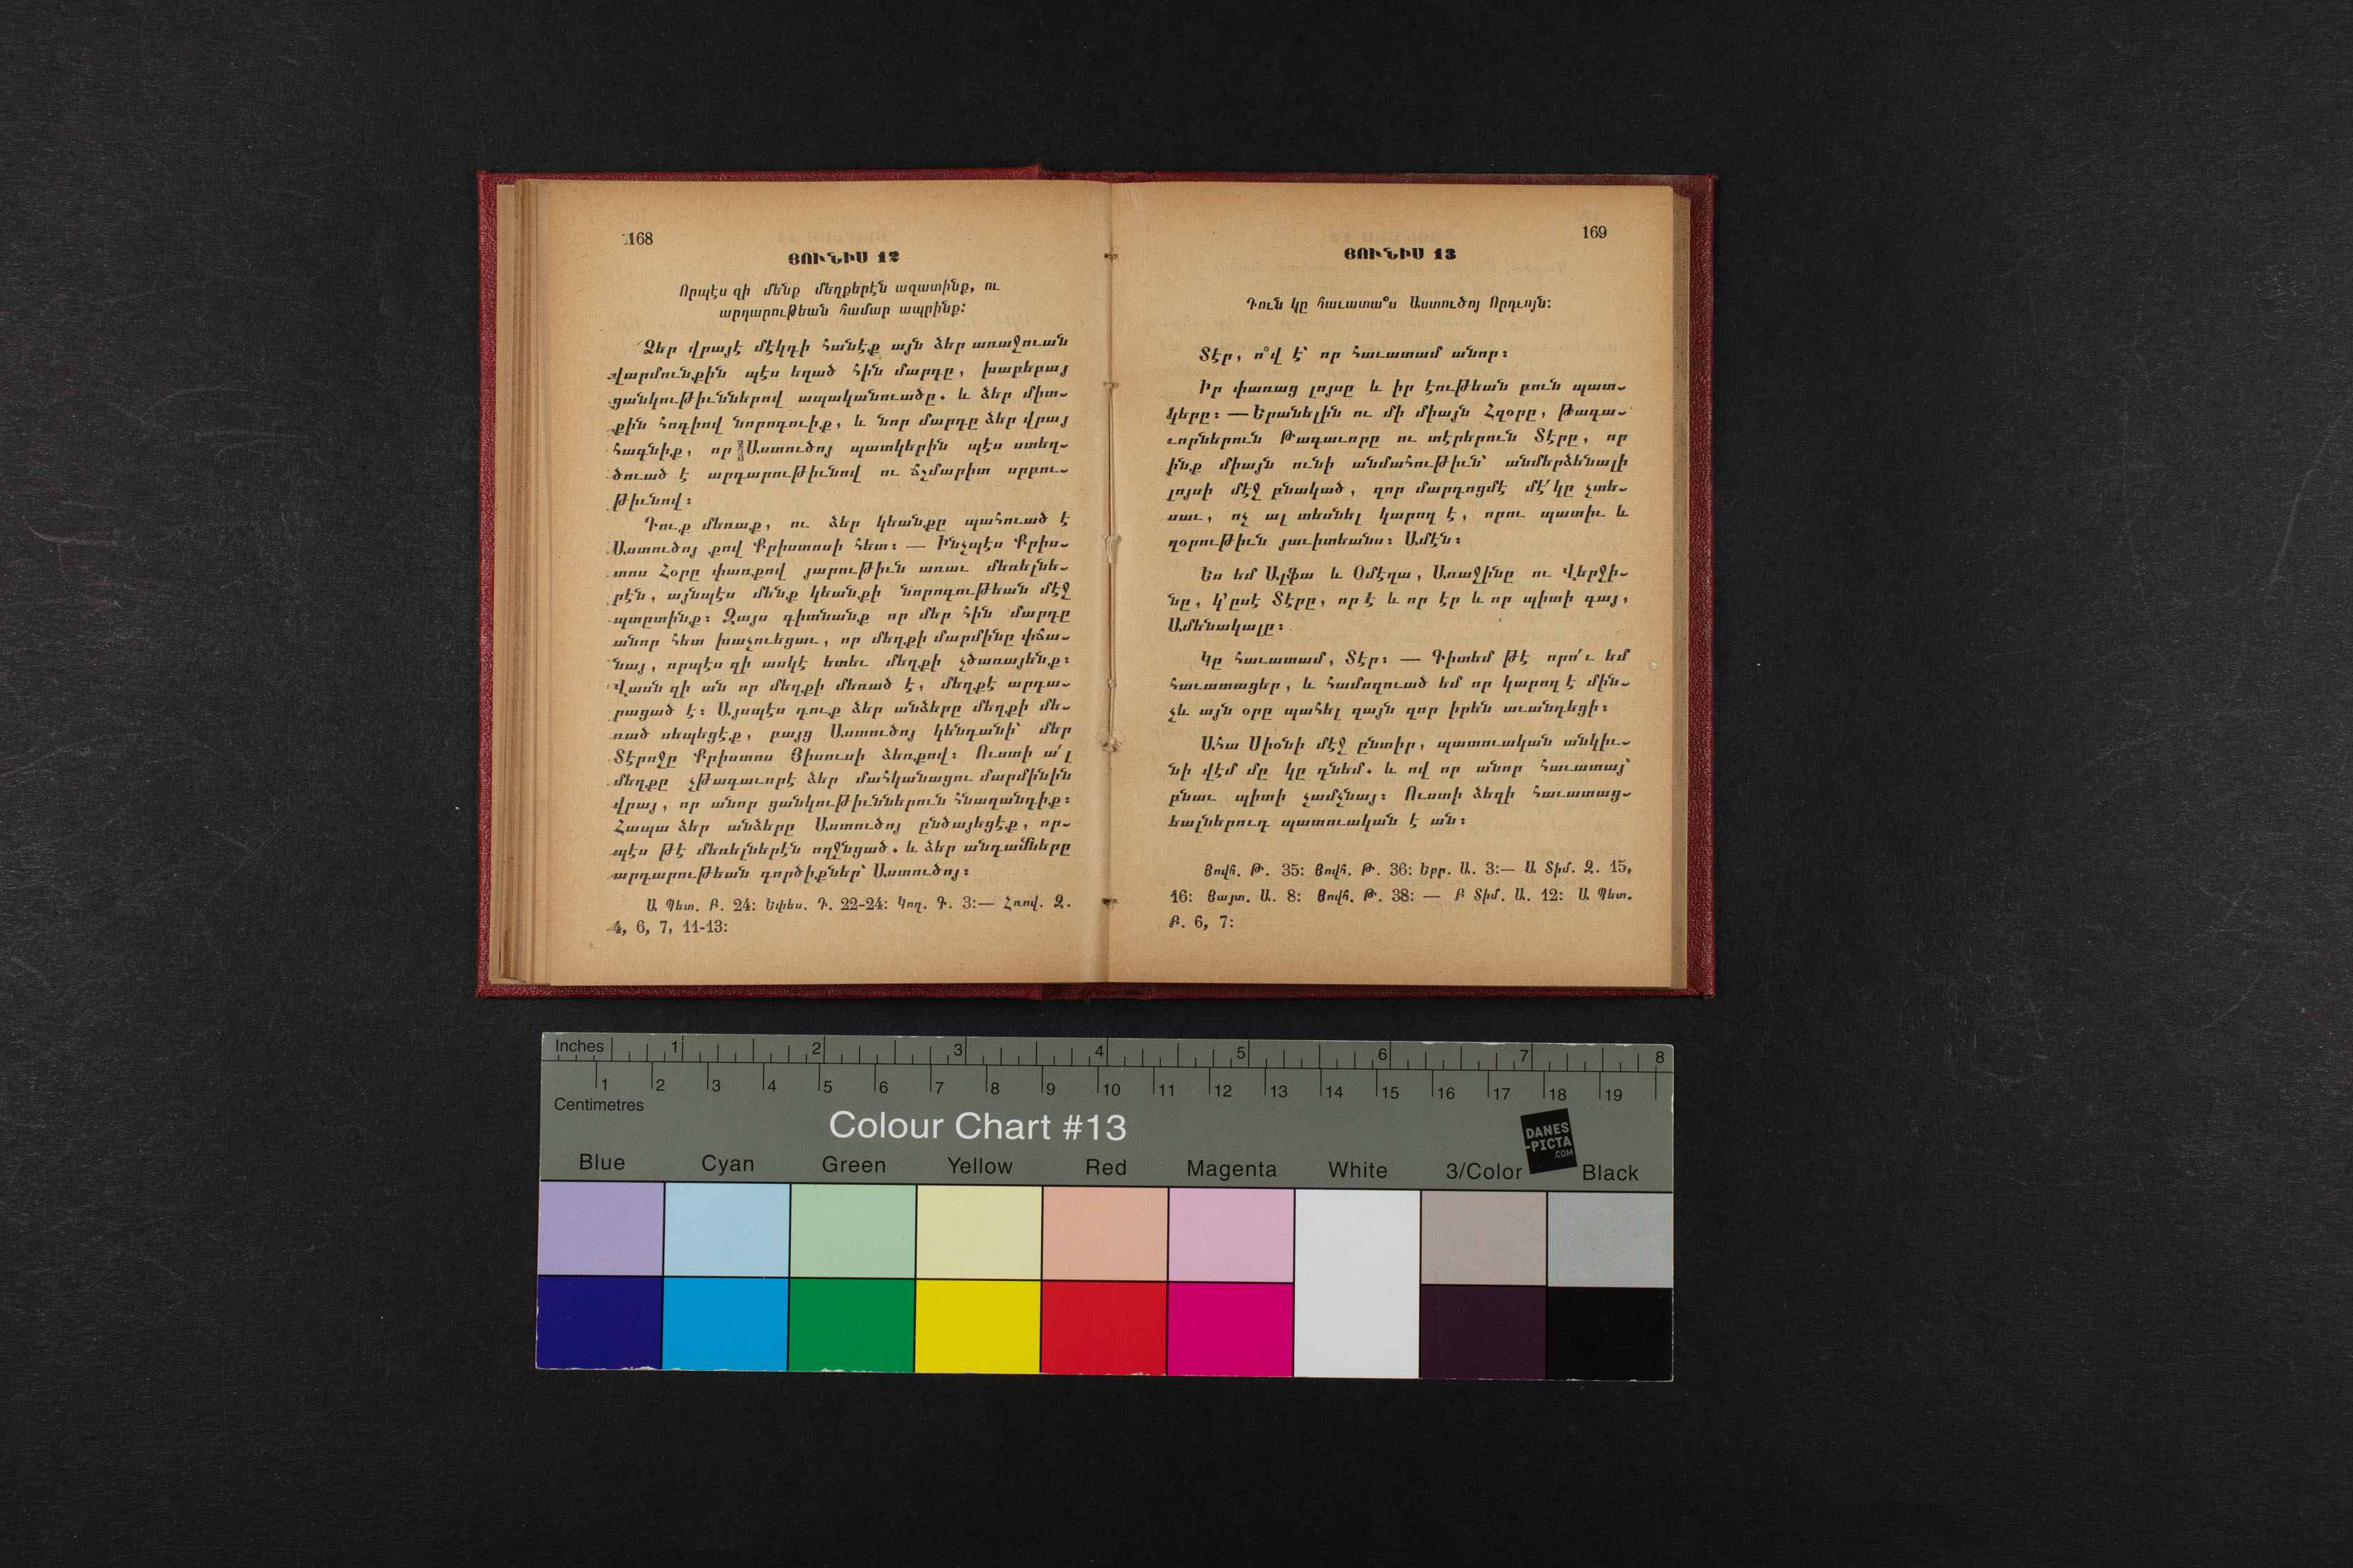 168
ՅՈՒՆԻՍ 12
Որպէս զի մենք մեղքերէն ազատինք, ու
արդարութեան համար ապրինք:
Ձեր վրայէ մէկդի հանէք այն ձեր առաջուան
վարմունքին պէս եղած հին մարդը, խաբեբայ
ցանկութիւններով ապականուածը. և ձեր միտ-
քին հոգիով նորոգուիք, և նոր մարդը ձեր վրայ
հագնիք, որ Աստուծոյ պատկերին պէս ստեղ-
ծուած է արդարութիւնով ու ճշմարիտ սրբու-
թիւնով։
Դուք մեռաք, ու ձեր կեանքը պահուած է
Աստուծոյ քով Քրիստոսի հետ։ — Ինչպէս Քրիս-
տոս Հօրը փառքով յարութիւն առաւ մեռելնե-
րէն, այնպէս մենք կեանքի նորոգութեան մէջ
պտըտինք։ Զայս գիտնանք որ մեր հին մարդը
անոր հետ խաչուեցաւ, որ մեղքի մարմինը փճա-
նայ, որպէս զի ասկէ ետեւ մեղքի չծառայենք։
Վասն զի ան որ մեղքի մեռած է, մեղքէ արդա-
րացած է։ Այսպէս դուք ձեր անձերը մեղքի մե-
ռած սեպեցէք, բայց Աստուծոյ կենդանի՝ մեր
Տէրոջը Քրիստոս Յիսուսի ձեռքով։ Ուստի ա՛լ
մեղքը չթագաւորէ ձեր մահկանացու մարմինին
վրայ, որ անոր ցանկութիւններուն հնազանդիք։
Հապա ձեր անձերը Աստուծոյ ընծայեցէք, որ-
պէս թէ մեռելներէն ողջնցած. և ձեր անդամները
արդարութեան գործիքներ՝ Աստուծոյ։
Ա Պետ. Բ. 24: Եփես. Դ. 22-24: Կող. Գ. 3:— Հռով. Զ.
4, 6, 7, 11-13:
169
ՅՈՒՆԻՍ 13
Դուն կը հաւատա՞ս Աստուծոյ Որդւոյն:
Տէր, ո՞վ է՝ որ հաւատամ անոր։
Իր փառաց լոյսը և իր էութեան բուն պատ-
կերը։ — Երանելին ու մի միայն Հզօրը, թագա-
ւորներուն Թագաւորը ու տէրերուն Տէրը, որ
ինք միայն ունի անմահութիւն՝ անմերձենալի
լոյսի մէջ բնակած, զոր մարդոցմէ մէ՛կը չտե-
սաւ, ոչ ալ տեսնել կարող է, որու պատիւ և
զօրութիւն յաւիտեանս։ Ամէն։
Ես եմ Ալֆա և Օմէղա, Առաջինը ու Վերջի-
նը, կ՚ըսէ Տէրը, որ է և որ էր և որ պիտի գայ,
Ամենակալը։
Կը հաւատամ, Տէր։ — Գիտեմ թէ որո՛ւ եմ
հաւատացեր, և համոզուած եմ որ կարող է մին-
չև այն օրը պահել զայն զոր իրեն աւանդեցի։
Ահա Սիօնի մէջ ընտիր, պատուական անկիւ-
նի վէմ մը կը դնեմ. և ով որ անոր հաւատայ՝
բնաւ պիտի չամչնայ։ Ուստի ձեզի հաւատաց-
եալներուդ պատուական է ան։
Յովհ. Թ. 35: Յովհ. Թ. 36: Եբր. Ա. 3:— Ա Տիմ. Զ. 15,
16: Յայտ. Ա. 8: Յովհ. Թ. 38: — Բ Տիմ. Ա. 12: Ա Պետ.
Բ. 6, 7:
Inches 1 2 3 4 5 6 7 8
1 2 3 4 5 6 7 8 9 10 11 12 13 14 15 16 17 18 19
Centimetres
Colour Chart #13
DANES
-PICTA
.COM
Blue Cyan Green Yellow Red Magenta White 3/Color Black